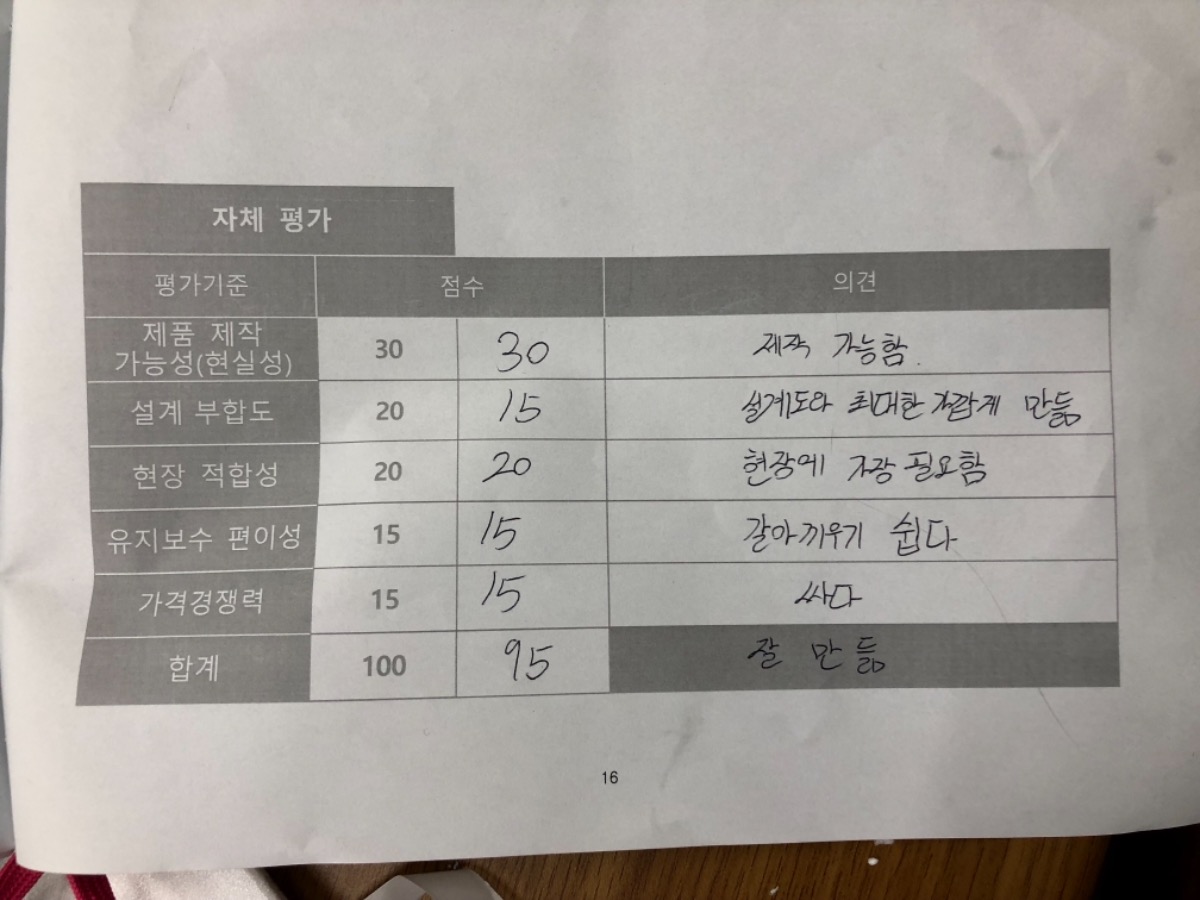 자체 평가
평가기준 점수 의견
제품 제작
가능성(현실성) 30 30 제작 가능함.
설계 부합도 20 15 설계도와 최대한 가깝게 만듦
현장 적합성 20 20 현장에 가장 필요함
유지보수 편이성 15 15 갈아끼우기 쉽다
가격경쟁력 15 15 싸다
합계 100 95 잘 만듦
16